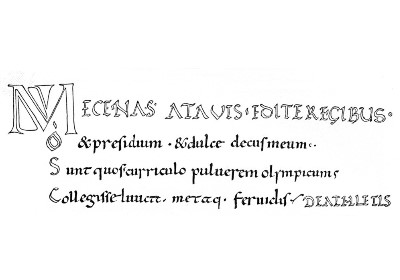 MECENAS ATAVIS · EDITE REGIBUS ·
O & presidium · & dulce decus meum ·
Sunt quos curriculo puluerem olympicum
Collegisse iuuat · metaq · feruidis